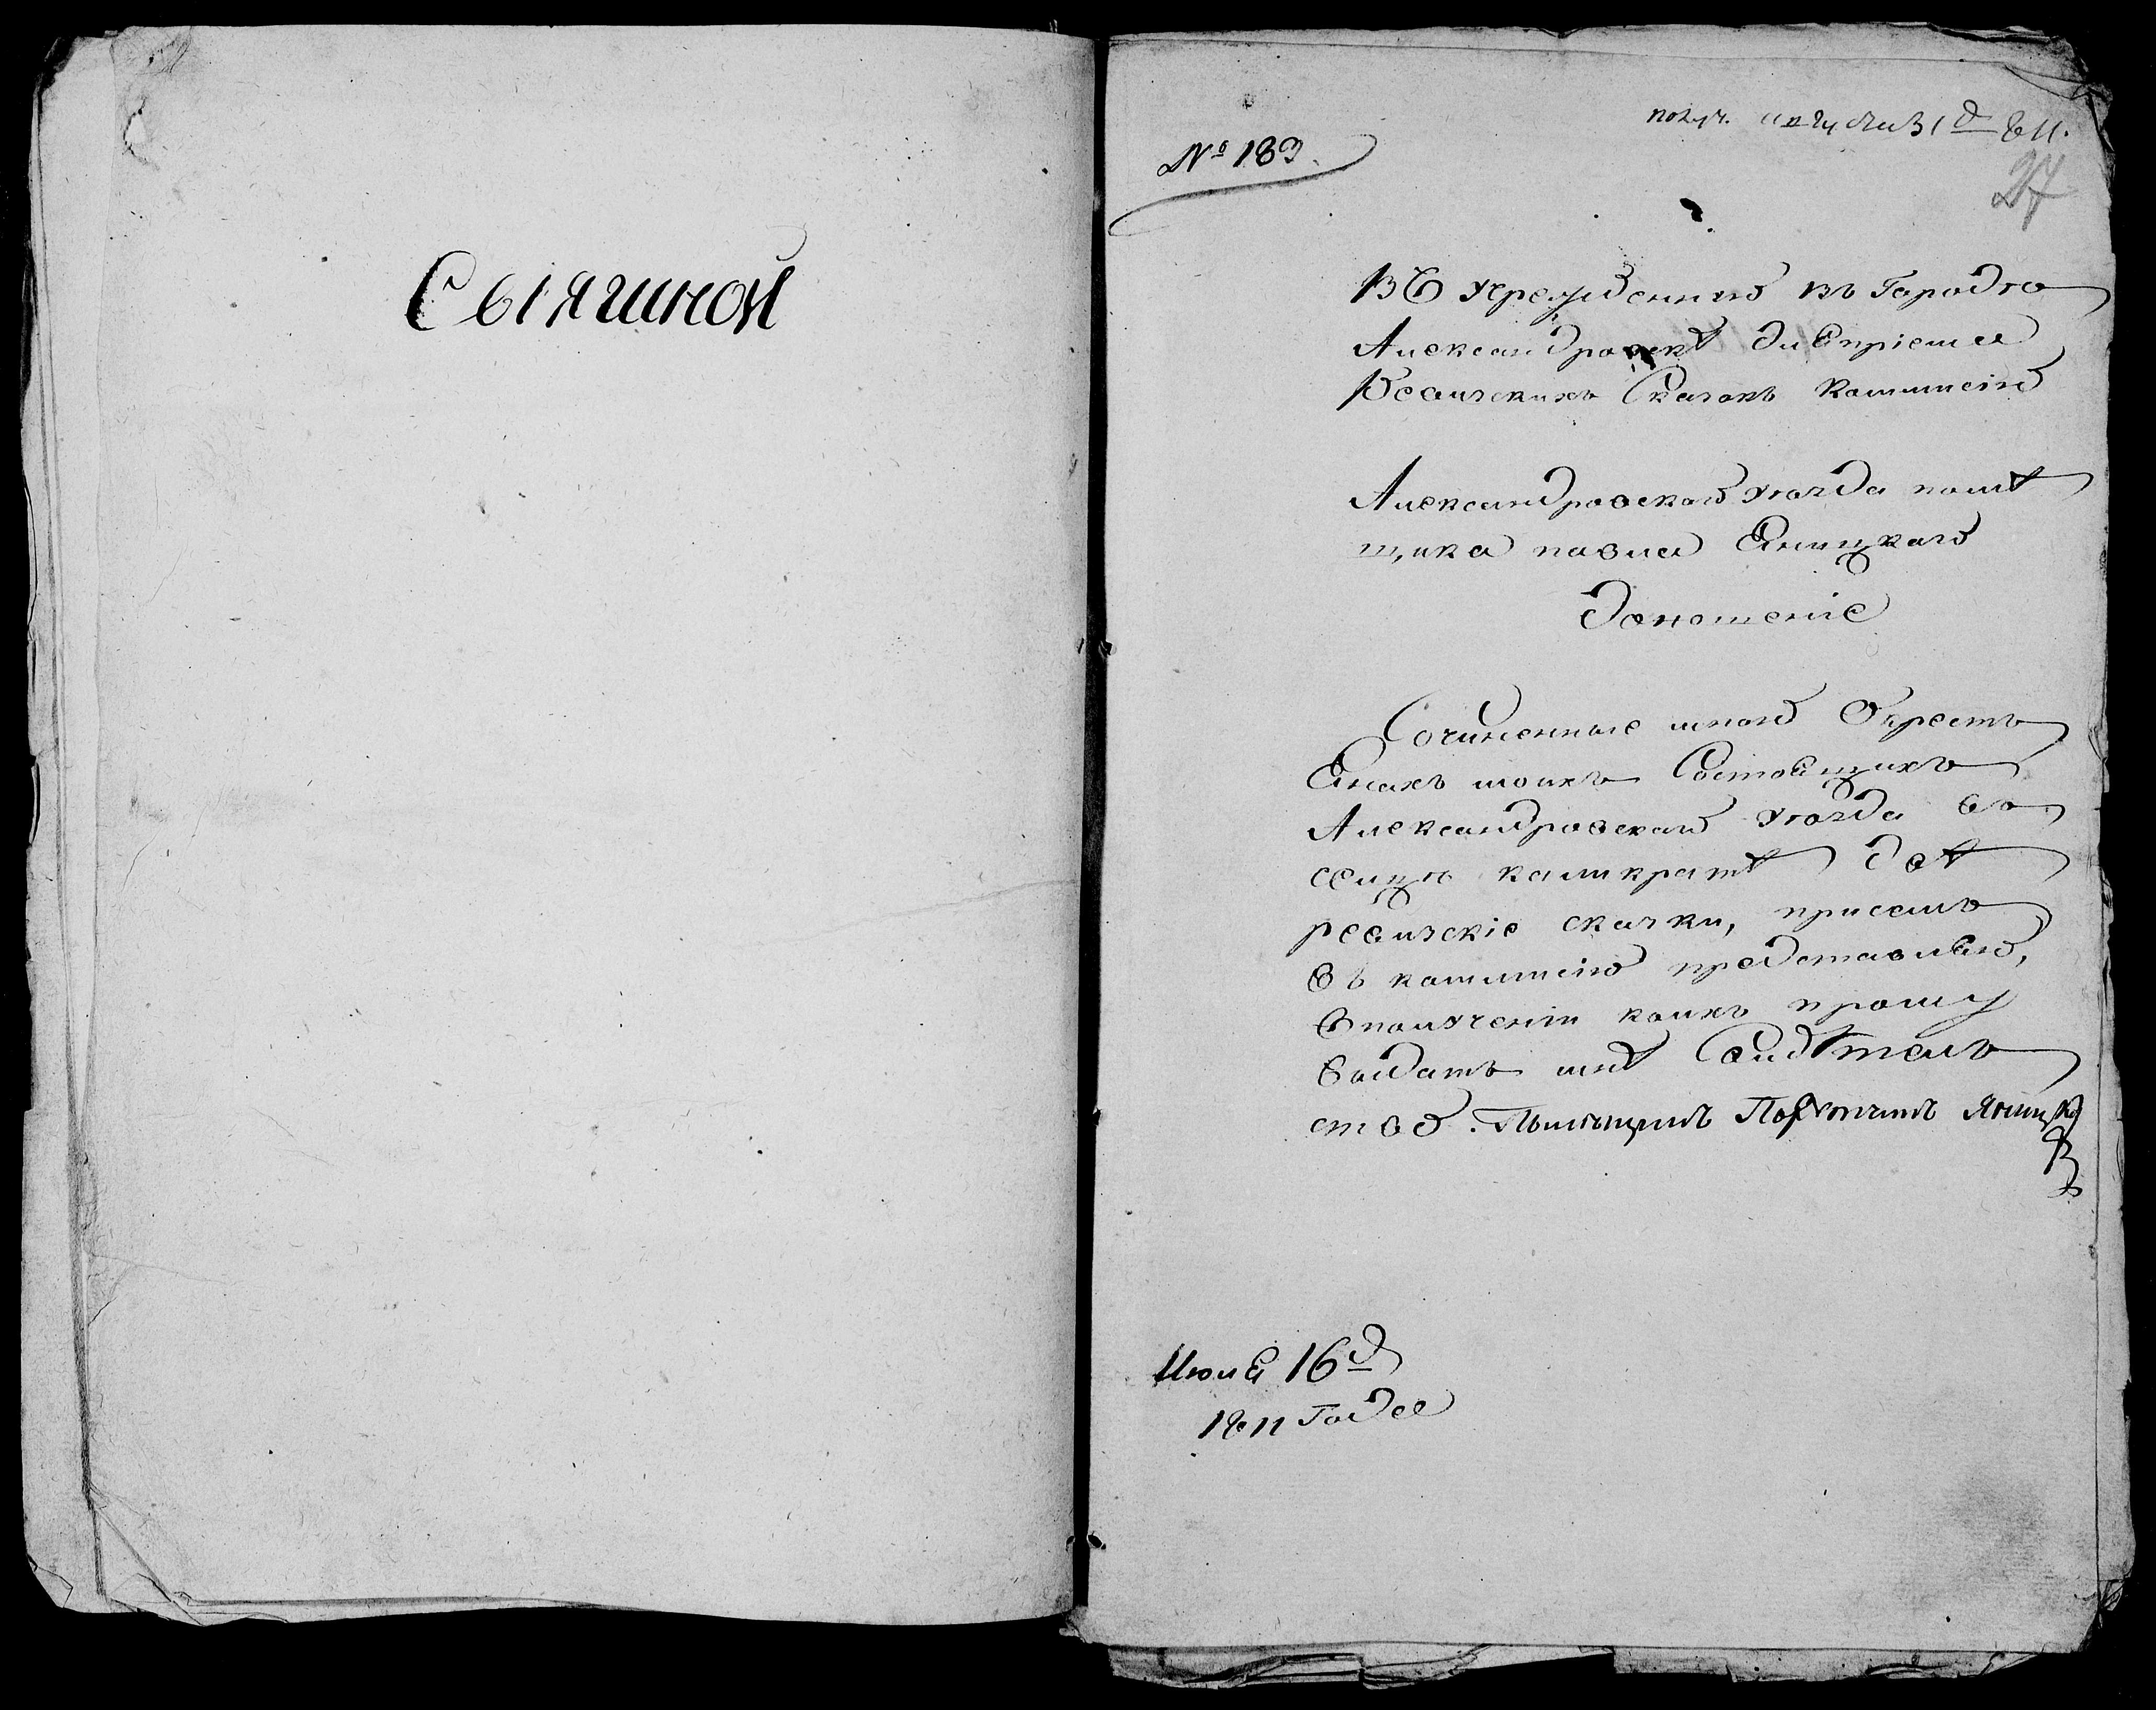 Сынгиной
№ 183.
получ. августа 31 д 811.
27
Въ учрежденную въ Городѣ
Александровскѣ для приема
Ревизскихъ Сказокъ Коммисію
Александровскаго уѣзда помѣ
щика павла Яницкаго
Доношеніе
Сочиненные мною О крестъ
янахъ моихъ Состоящихъ
Александровскаго уѣзда въ
селцѣ камкратѣ двѣ
ревизскіе сказки, присемъ
въ коммисію представляю,
Вполученіи коихъ прошу
выдать мнѣ Свидѣтель
ство. Помѣщикъ Порутчикъ Яницкій
Июля 16 д
1811 Года